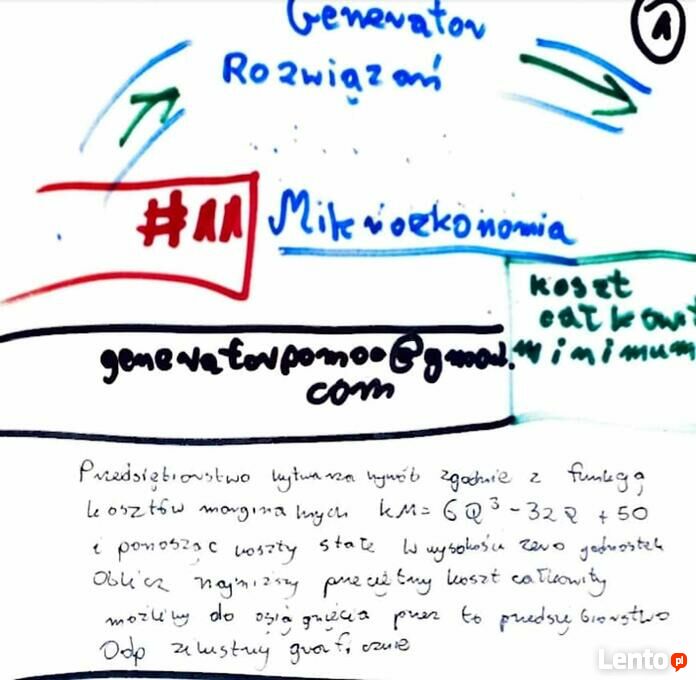 Generator
1
Rozwiązań
#11 Mikroekonomia
koszt
całkowit
minimum
generatorpomoc@gmail.
com
Przedsiębiorstwo wytwarza wyrób zgodnie z funkcją
kosztów marginalnych KM= 6Q³ - 32Q + 50
i ponosząc koszty stałe w wysokości zero jednostek
Oblicz najniższy przeciętny koszt całkowity
możliwy do osiągnięcia przez to przedsiębiorstwo
Odp zilustruj graficznie
Lento.pl